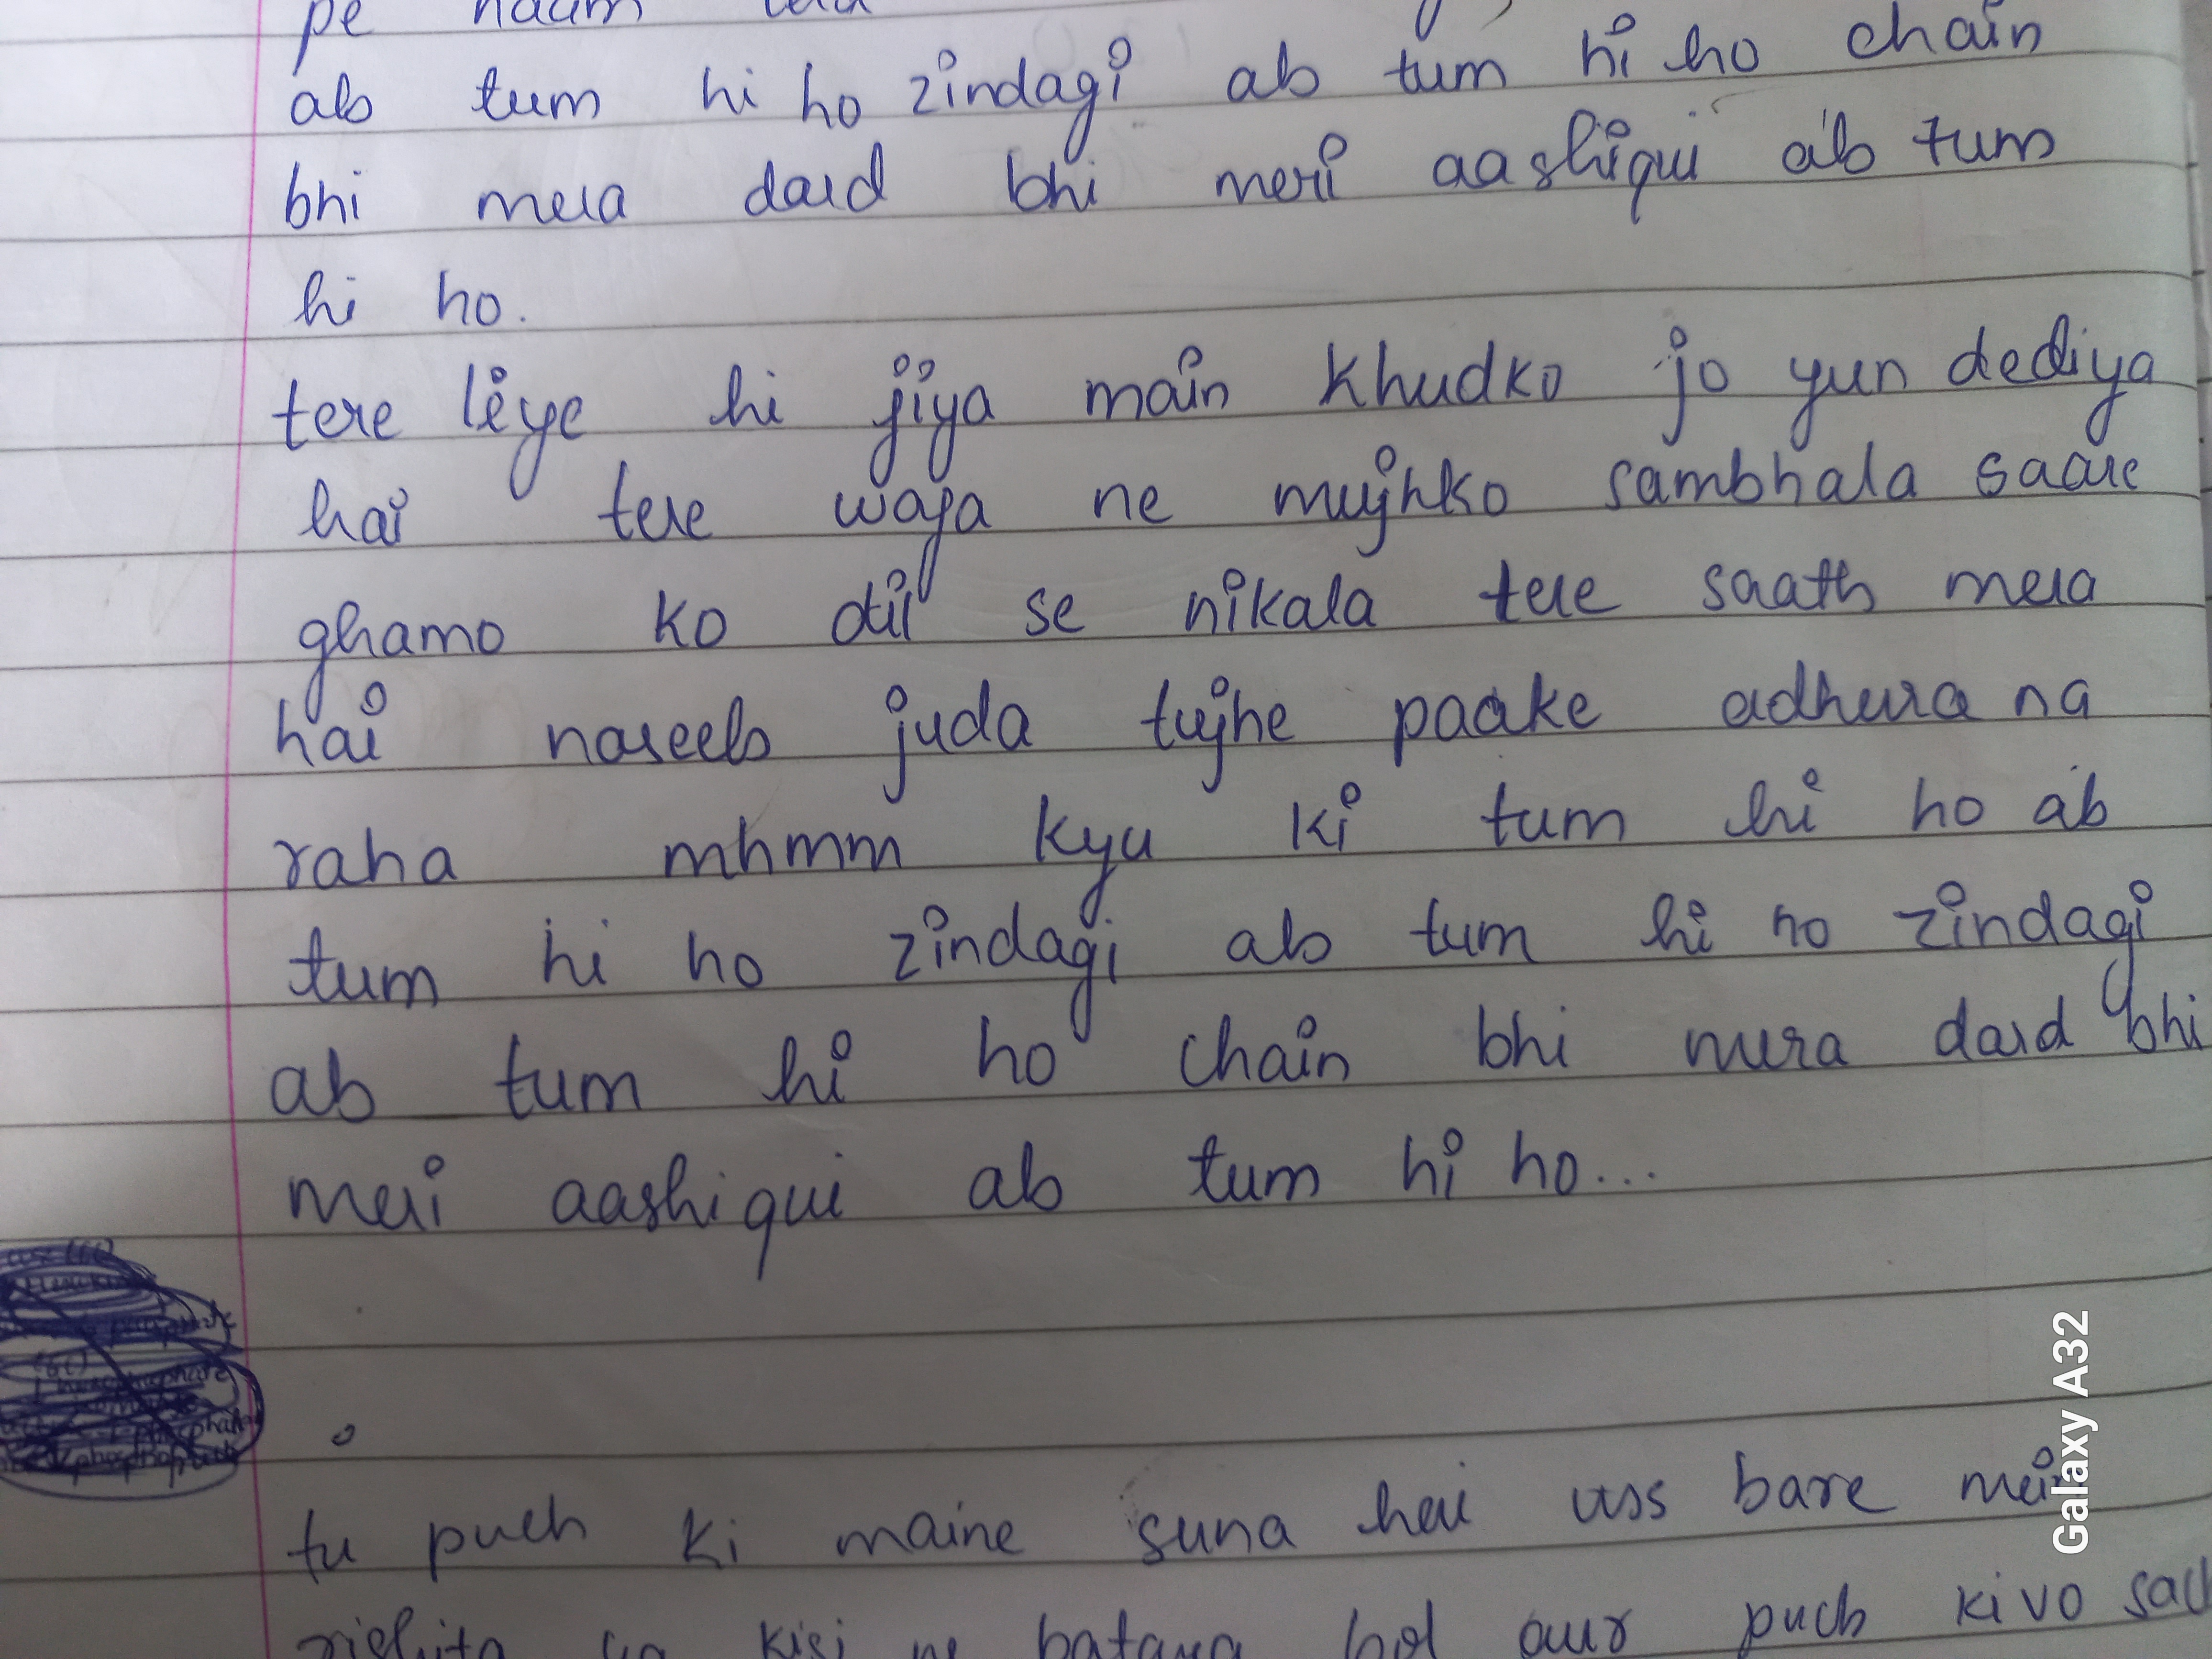 pe naam
ab tum hi ho zindagi ab tum hi ho chain
bhi mera dard bhi meri aashiqui ab tum
hi ho.
tere liye hi jiya main khudko jo yun dediya
hai tere waja ne mujhko sambhala saare
ghamo ko dil se nikala tere saath mera
hai naseeb juda tujhe paake adhura na
raha mhmm kyu ki tum hi ho ab
tum hi ho zindagi ab tum hi ho zindagi
ab tum hi ho chain bhi mera dard bhi
meri aashiqui ab tum hi ho...
tu puch ki maine suna hai uss bare mein
kisi ne bataya bol aur puch ki vo sach
Galaxy A32